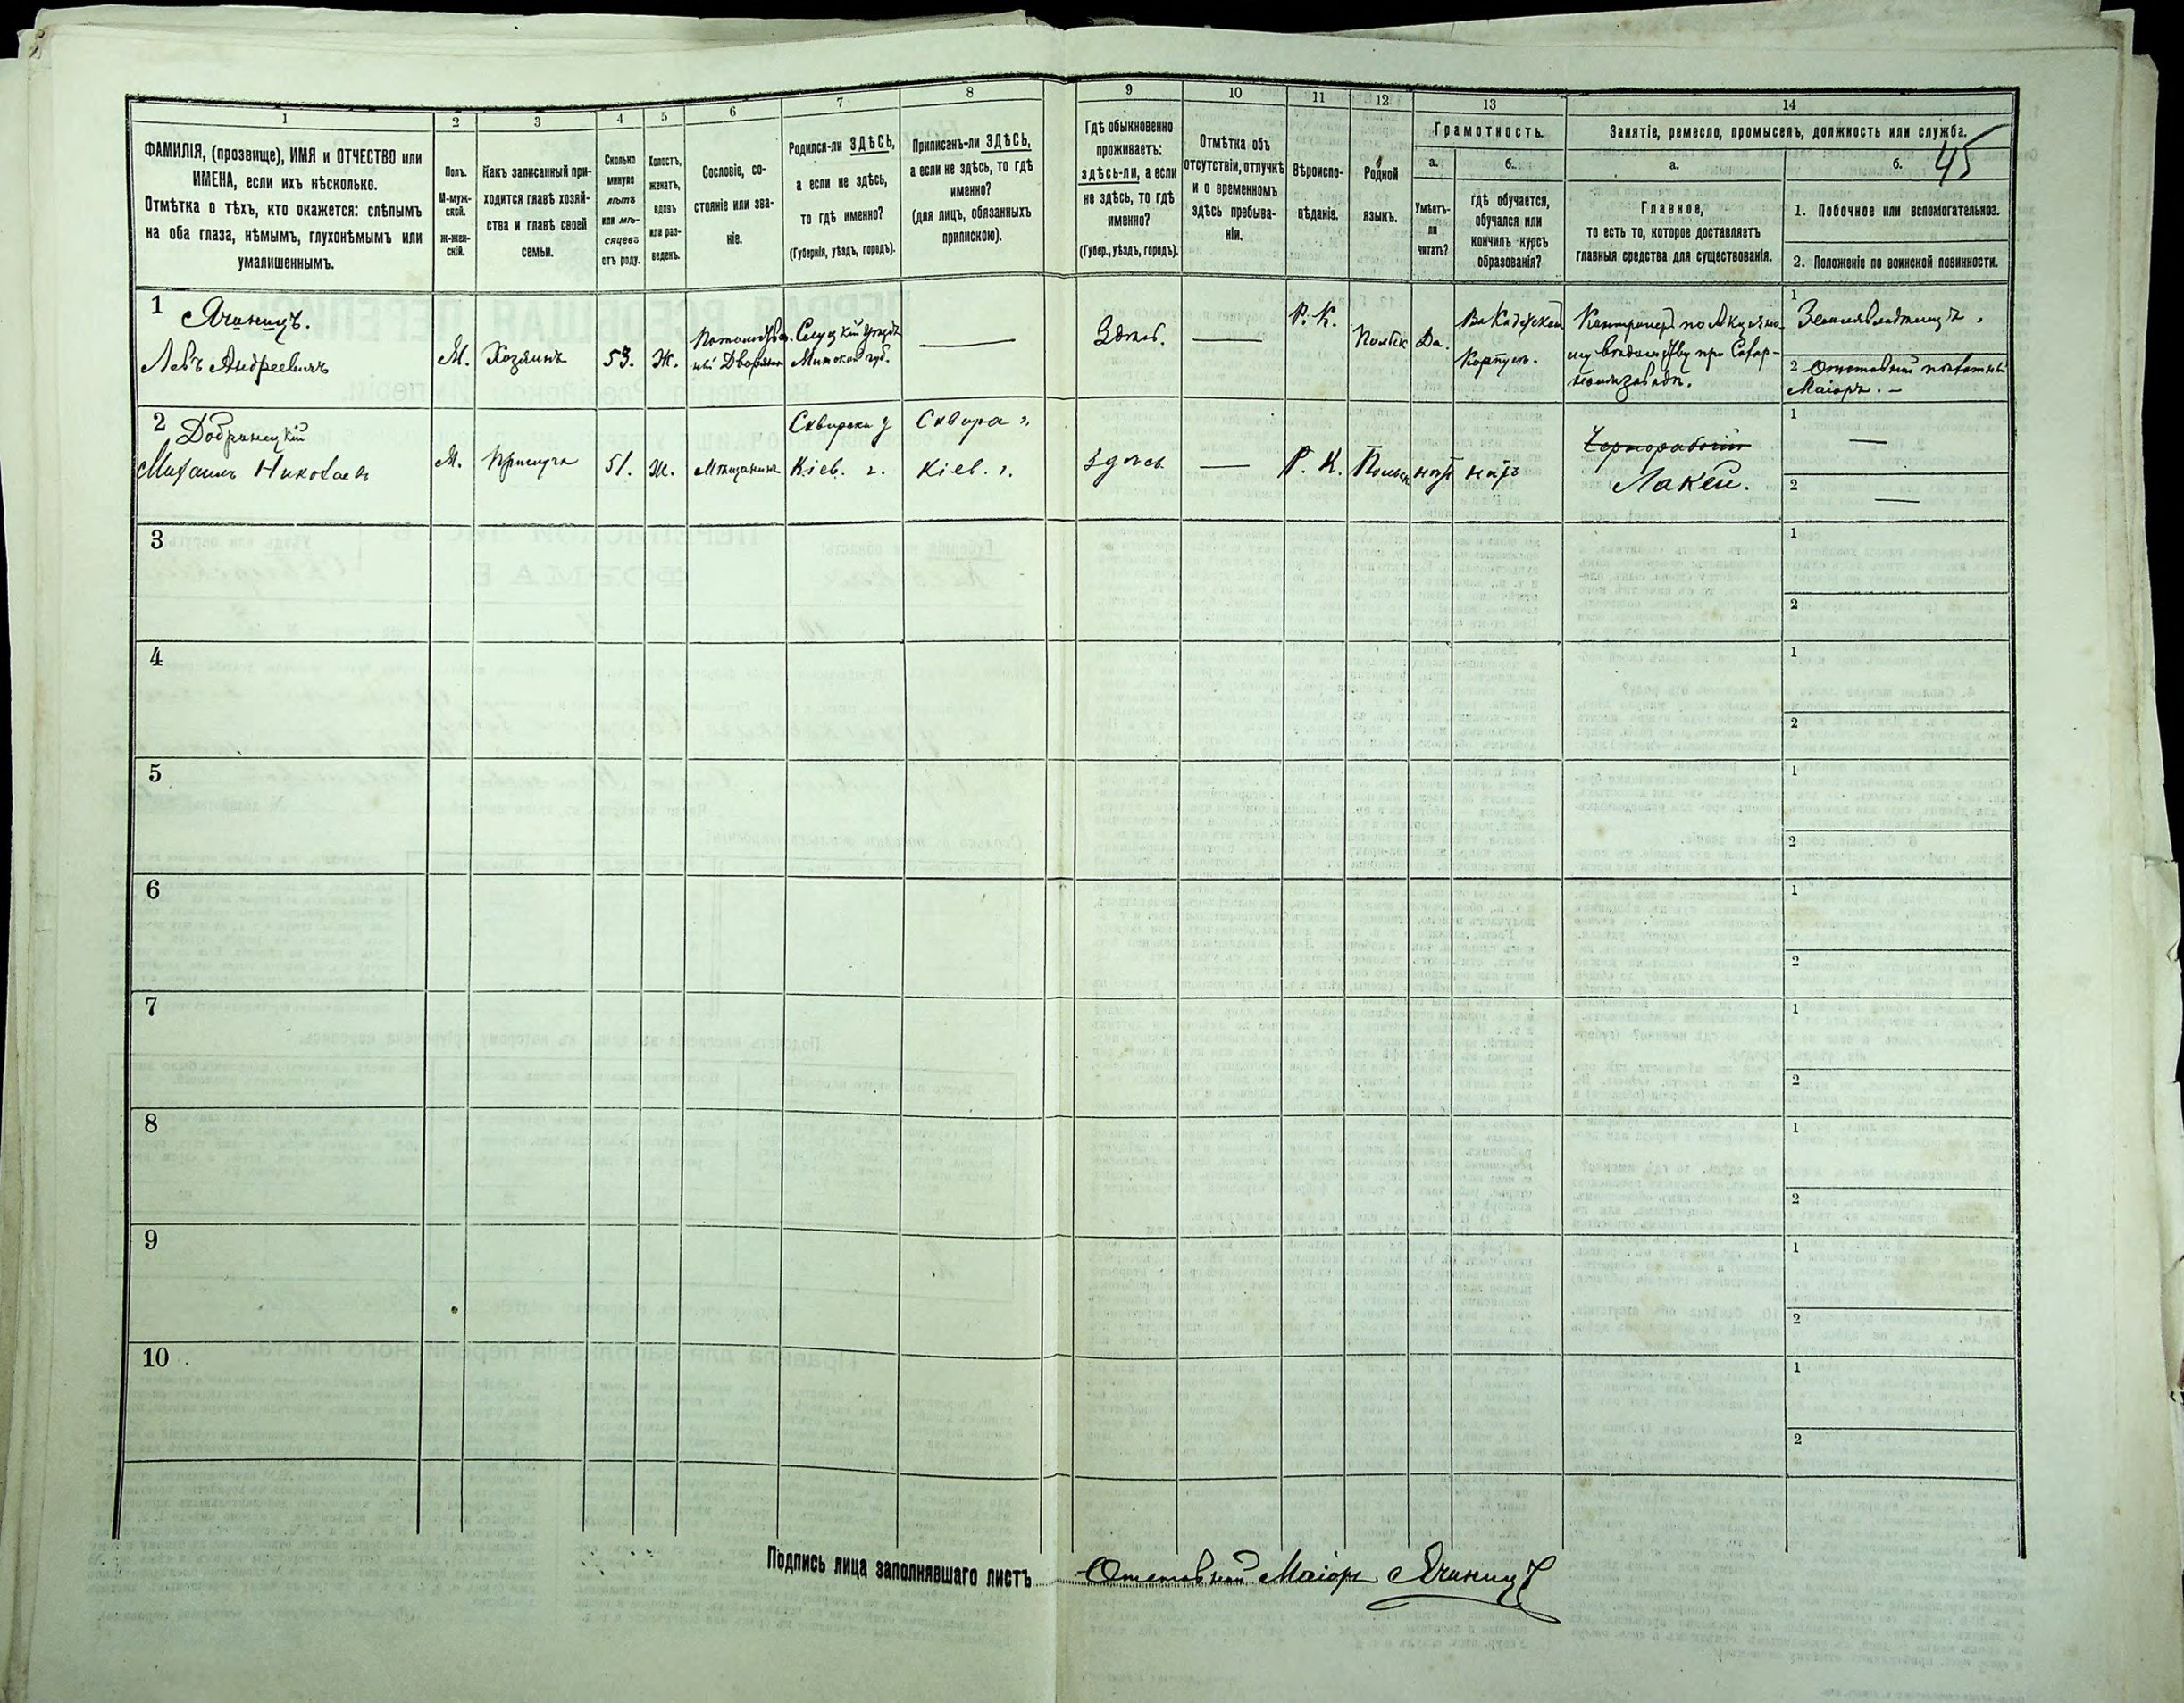 1 2 3 4 5 6 7 8 9 10 11 12 13 14
45
ФАМИЛІЯ, (прозвище), ИМЯ и ОТЧЕСТВО или
ИМЕНА, если ихъ нѣсколько.
Отмѣтка о тѣхъ, кто окажется: слѣпымъ
на оба глаза, нѣмымъ, глухонѣмымъ или
умалишеннымъ.
Полъ.
М-муж-
ской.
ж-жен-
скій.
Какъ записанный при-
ходится главѣ хозяй-
ства и главѣ своей
семьи.
Сколько
минуло
лѣтъ
или мѣ-
сяцевъ
отъ роду.
Холостъ,
женатъ,
вдовъ
или раз-
веденъ.
Сословіе, со-
стояніе или зва-
ніе.
Родился-ли ЗДѢСЬ,
а если не здѣсь,
то гдѣ именно?
(Губернія, уѣздъ, городъ).
Приписанъ-ли ЗДѢСЬ,
а если не здѣсь, то гдѣ
именно?
(для лицъ, обязанныхъ
припискою).
Гдѣ обыкновенно
проживаетъ:
здѣсь-ли, а если
не здѣсь, то гдѣ
именно?
(Губер., уѣздъ, городъ).
Отмѣтка объ
отсутствіи, отлучкѣ
и о временномъ
здѣсь пребыва-
ніи.
Вѣроиспо-
вѣданіе.
Родной
языкъ.
Грамотность.
а.
Умѣетъ-
ли
читать?
б.
гдѣ обучается,
обучался или
кончилъ курсъ
образованія?
Занятіе, ремесло, промыселъ, должность или служба.
а.
Главное,
то есть то, которое доставляетъ
главныя средства для существованія.
б.
1. Побочное или вспомогательное.
2. Положеніе по воинской повинности.
1
Левъ Андреевичъ
М.
Хозяинъ
53.
Ж.
Слуцкій Уѣздъ
Минской губ.
—
Здѣсь.
—
Р. К.
Да.
Въ Кадетскомъ
Корпусѣ.
1 Землевладѣлецъ.
2 Отставной
Маіоръ. —
2
Михаилъ Николаевъ
М.
Прислуга
51.
Ж.
Мѣщанинъ
Сквирскій у
Кіев. г.
Сквира г.
Кіев. г.
Здѣсь
—
Р. К.
нѣтъ
нѣтъ
Чернорабочій
Лакей.
1 —
2 —
3
1
2
4
1
2
5
1
2
6
1
2
7
1
2
8
1
2
9
1
2
10
1
2
Подпись лица заполнявшаго листъ Отставной Маіоръ